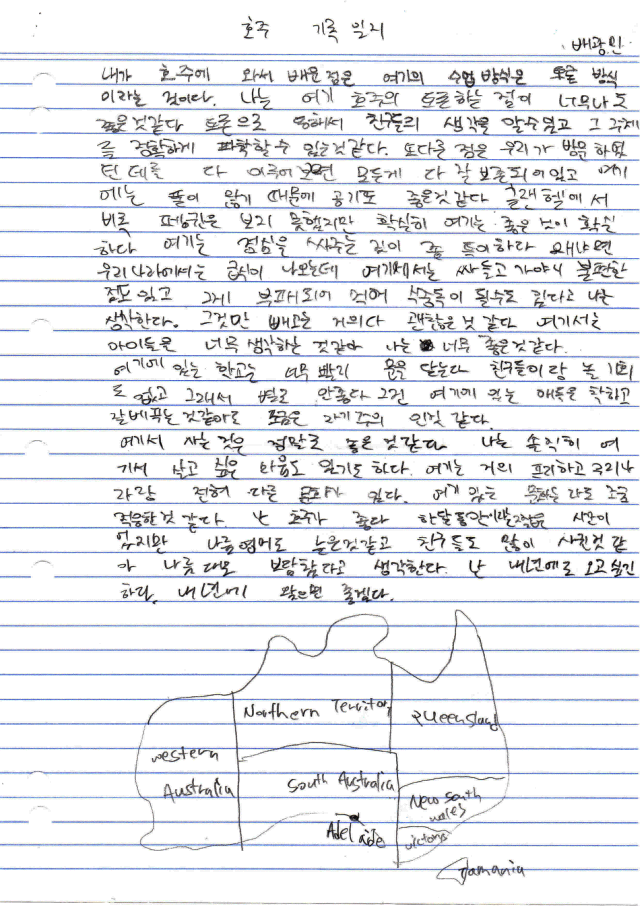 호주 기록 일지
배광민
내가 호주에 와서 배운 점은 여기의 수업 방식은 토론 방식
이라는 것이다. 나는 여기 호주의 토론하는 점이 너무나도
좋은것같다 토론으로 통해서 친구들의 생각을 알수있고 그 주제
를 정확하게 파악할수 있는것같다. 또다른 점은 우리가 방문 하였
던 데를 다 이루어보면 모든게 다 잘 보존되어있고 여기
에는 들이 많기 때문에 공기도 좋은것같다 글랜헬에서
비록 펭귄은 보지 못했지만 확실히 여기는 좋은 것이 확실
하다 여기는 점심을 싸주는 것이 좀 특이하다 왜냐면
우리나라에서는 급식이 나오는데 여기에서는 싸들고 가야니 불편한
점도 있고 그게 부패되어 식중독이 될수도 있다고 나는
생각한다. 그것만 빼고는 거의다 괜찮은것 같다 여기서는
아이들은 너무 생각하는 것같아 나는 너무 좋은것같다.
여기에 있는 학교는 너무 빨리 문을 닫는다 친구들이랑 놀 기회
도 없고 그래서 별로 안좋다 그건 여기에 있는 애들은 착하고
잘베푸는것같아도 조금은 자기주의 인것 같다.
여기서 사는 것은 정말로 좋은 것같다 나는 솔직히 여
기서 살고 싶은 마음도 있기도 하다. 여기는 거의 프리하고 우리나
라랑 전혀 다른 문화가 있다. 여기 있는 문화를 나도 조금
적응한것 같다. 난 호주가 좋다 한달동안이라는 짧은 시간이
었지만 나름 영어도 늘은것같고 친구들도 많이 사귄것 같
아 나름대로 보람찼다고 생각한다. 난 내년에도 오고 싶긴
하다. 내년에 왔으면 좋겠다.
Northern Territory
Queensland
western
Australia
South Australia
New South
wales
Adelaide
victoria
Tamania